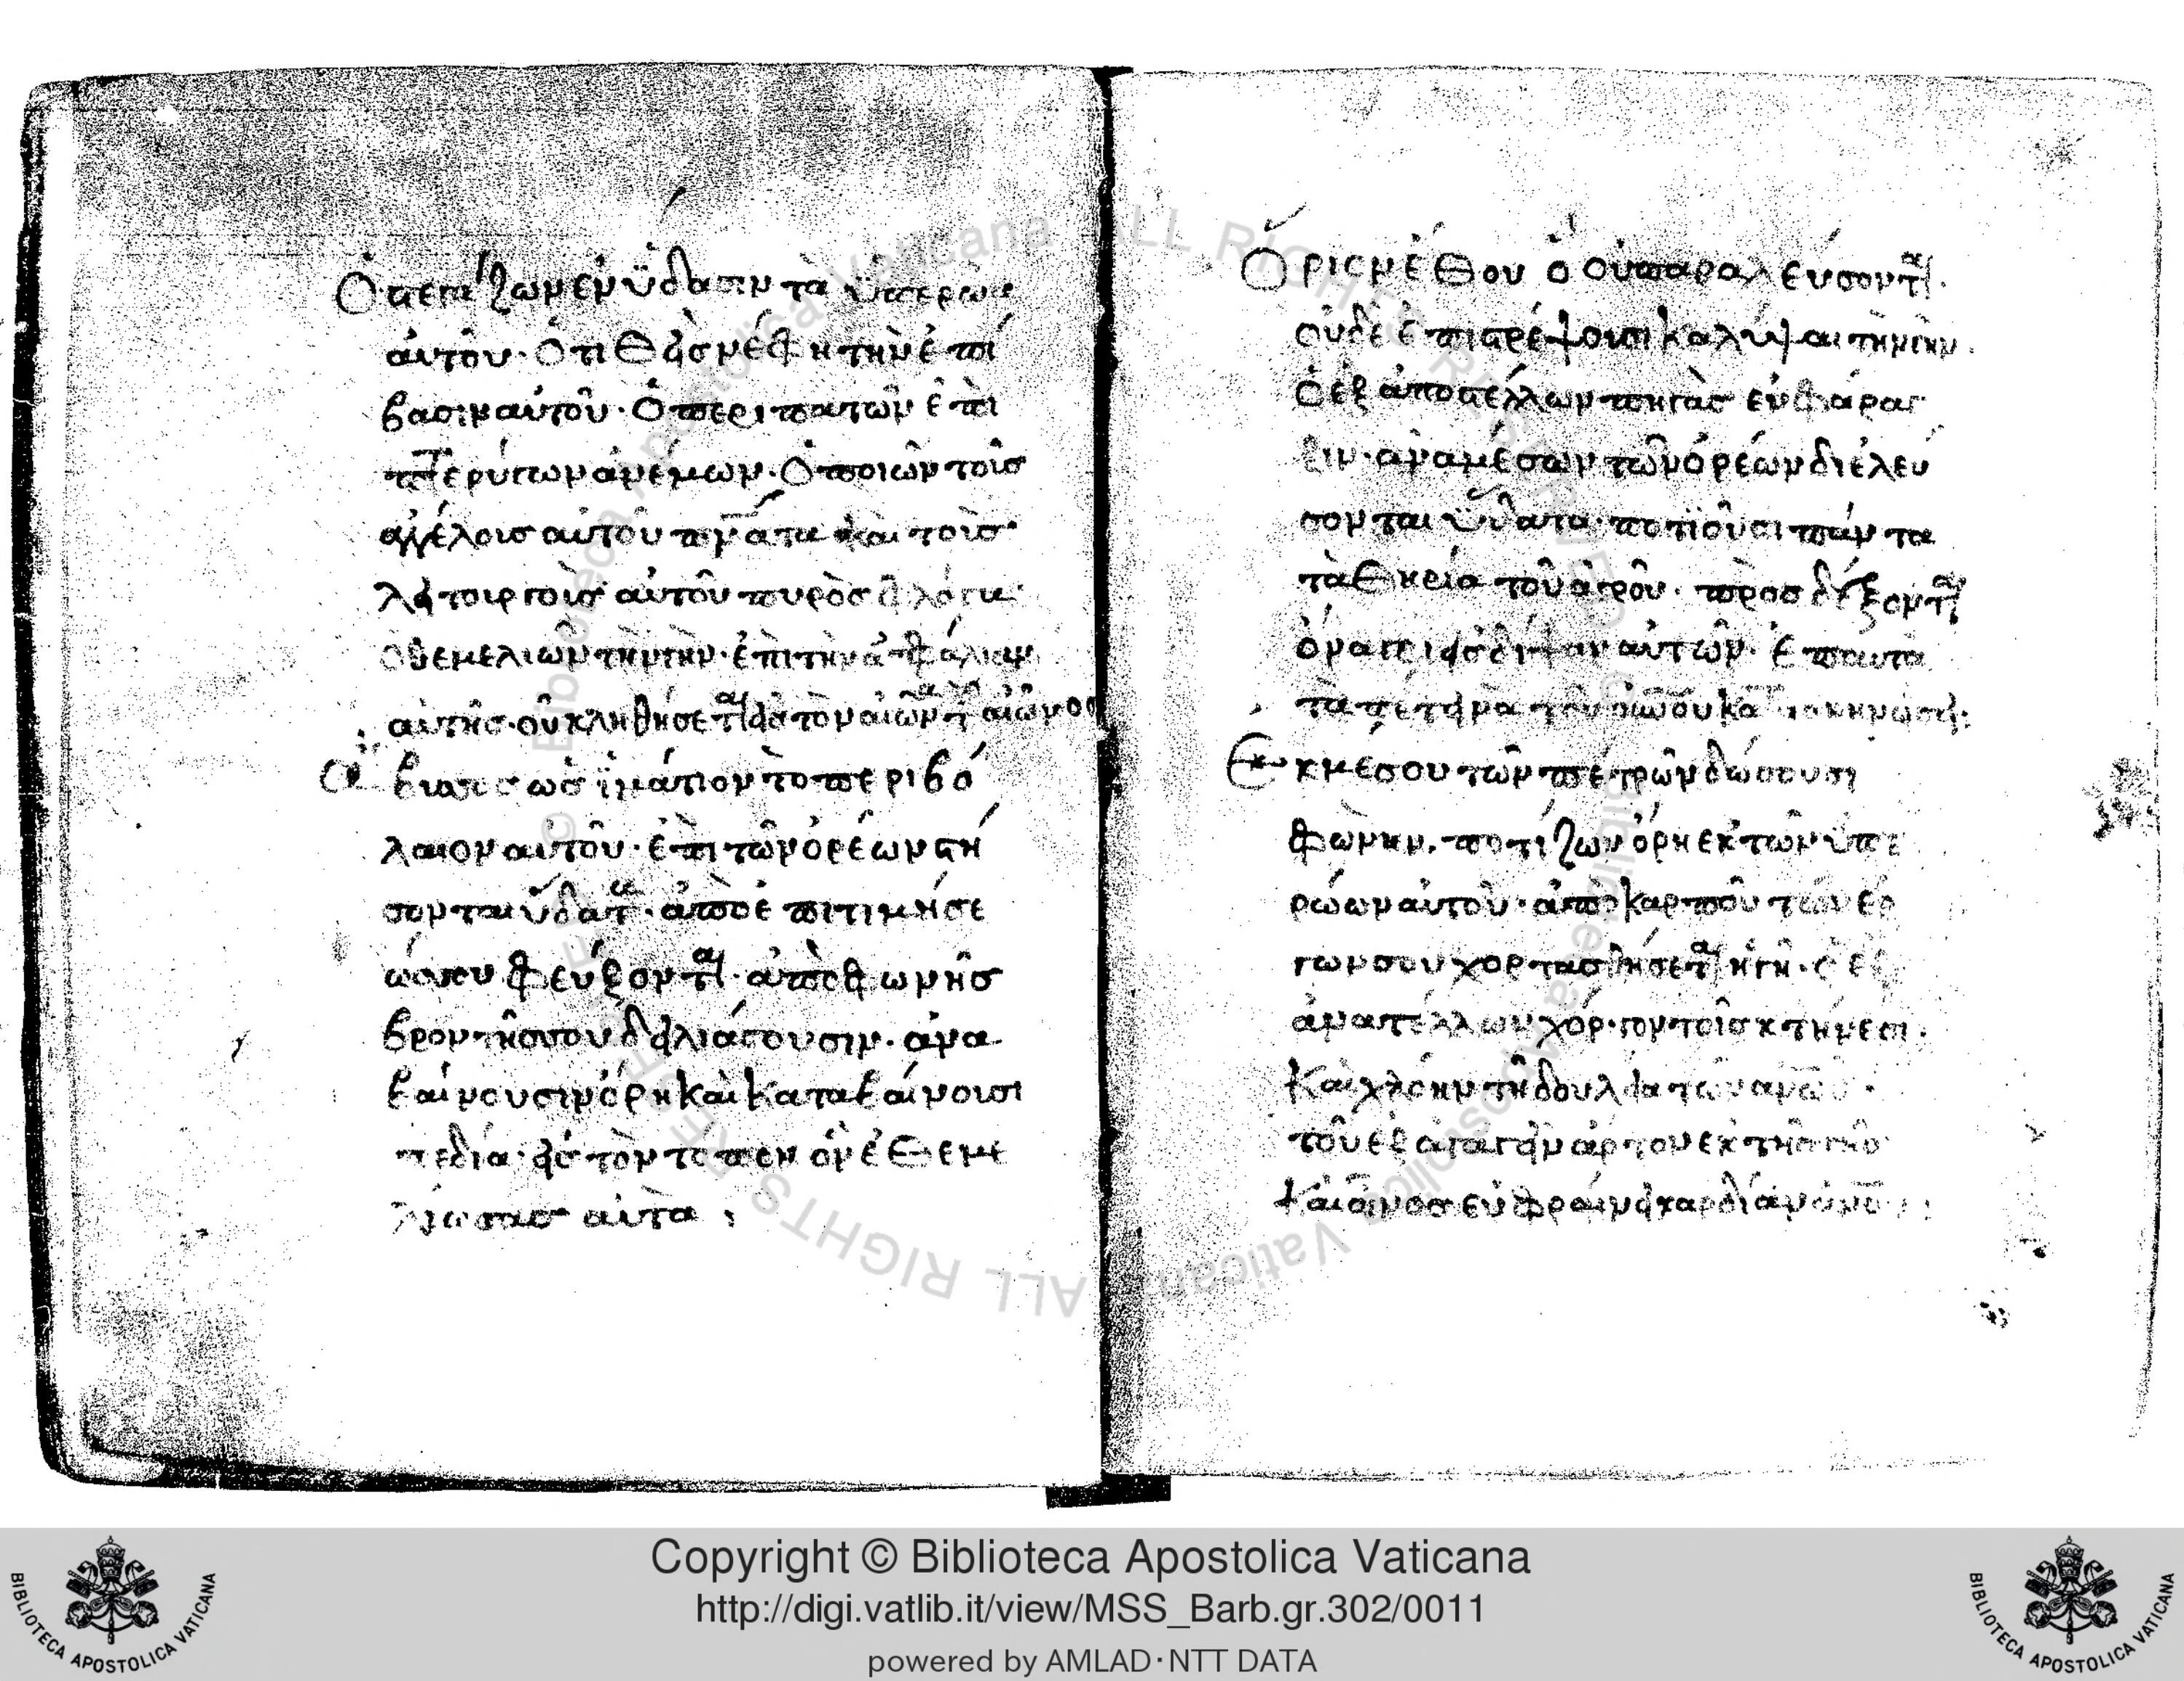 Ὁ στεγάζων ἐν ὕδασιν τὰ ὑπερῶα
αὐτοῦ· Ὁ τιθεὶς νέφη τὴν ἐπί
βασιν αὐτοῦ· Ὁ περιπατῶν ἐπὶ
πτερύγων ἀνέμων· Ὁ ποιῶν τοὺς
ἀγγέλους αὐτοῦ πνάτα καὶ τοὺς
λειτουργοὺς αὐτοῦ πυρὸς φλόγα·
Ὁ θεμελιῶν τὴν γὴν· ἐπὶ τὴν ἀσφάλειαν
αὐτῆς· οὐ κληθήσεται εἰς τὸν αἰῶνα τοῦ αἰῶνος
Ἄβυσσος ὡς ἱμάτιον τὸ περιβό
λαιον αὐτοῦ· ἐπὶ τῶν ὀρέων στή
σονται ὕδατα· ἀπὸ ἐπιτιμήσε
ώς σου φεύξονται· ἀπὸ φωνῆς
βροντῆς σου δειλιάσουσιν· ἀνα
βαίνουσιν ὄρη καὶ καταβαίνουσι
πεδία· εἰς τὸν τόπον ὃν ἐθεμε
λίωσας αὐτά;
Ὅριον ἔθου ὃ οὐ παρελεύσονται·
οὐδὲ ἐπιστρέψουσι καλύψαι τὴν γὴν.
Ὁ ἐξαποστέλλων πηγὰς ἐν φάραγ
ξιν· ἀναμέσων τῶν ὀρέων διελεύ
σονται ὕδατα· ποτιοῦσι πάντα
τὰ θηρία τοῦ ἀγροῦ· προσδέξονται
ὄναγροι εἰς δίψαν αὐτῶν· Ἐπ αὐτὰ
τὰ πετεινὰ τοῦ οὐνοῦ κατασκηνώσει·
Ἐκ μέσου τῶν πετρῶν δώσουσι
φωνὴν. ποτίζων ὄρη ἐκ τῶν ὑπε
ρώων αὐτοῦ· ἀπὸ καρποῦ τῶν ἔρ
γων σου χορτασθήσεται ἡ γῆ· ὁ ἐξ
ανατέλλων χόρτον τοῖς κτήνεσι·
καὶ χλόην τῇ δουλεία τῶν ανων·
τοῦ ἐξαγαγεῖν ἄρτον ἐκ τῆς γῆς
καὶ οἶνος εὐφραίνει καρδίαν ανου·
Copyright © Biblioteca Apostolica Vaticana
http://digi.vatlib.it/view/MSS_Barb.gr.302/0011
powered by AMLAD·NTT DATA
BIBLIOTECA APOSTOLICA VATICANA
BIBLIOTECA APOSTOLICA VATICANA